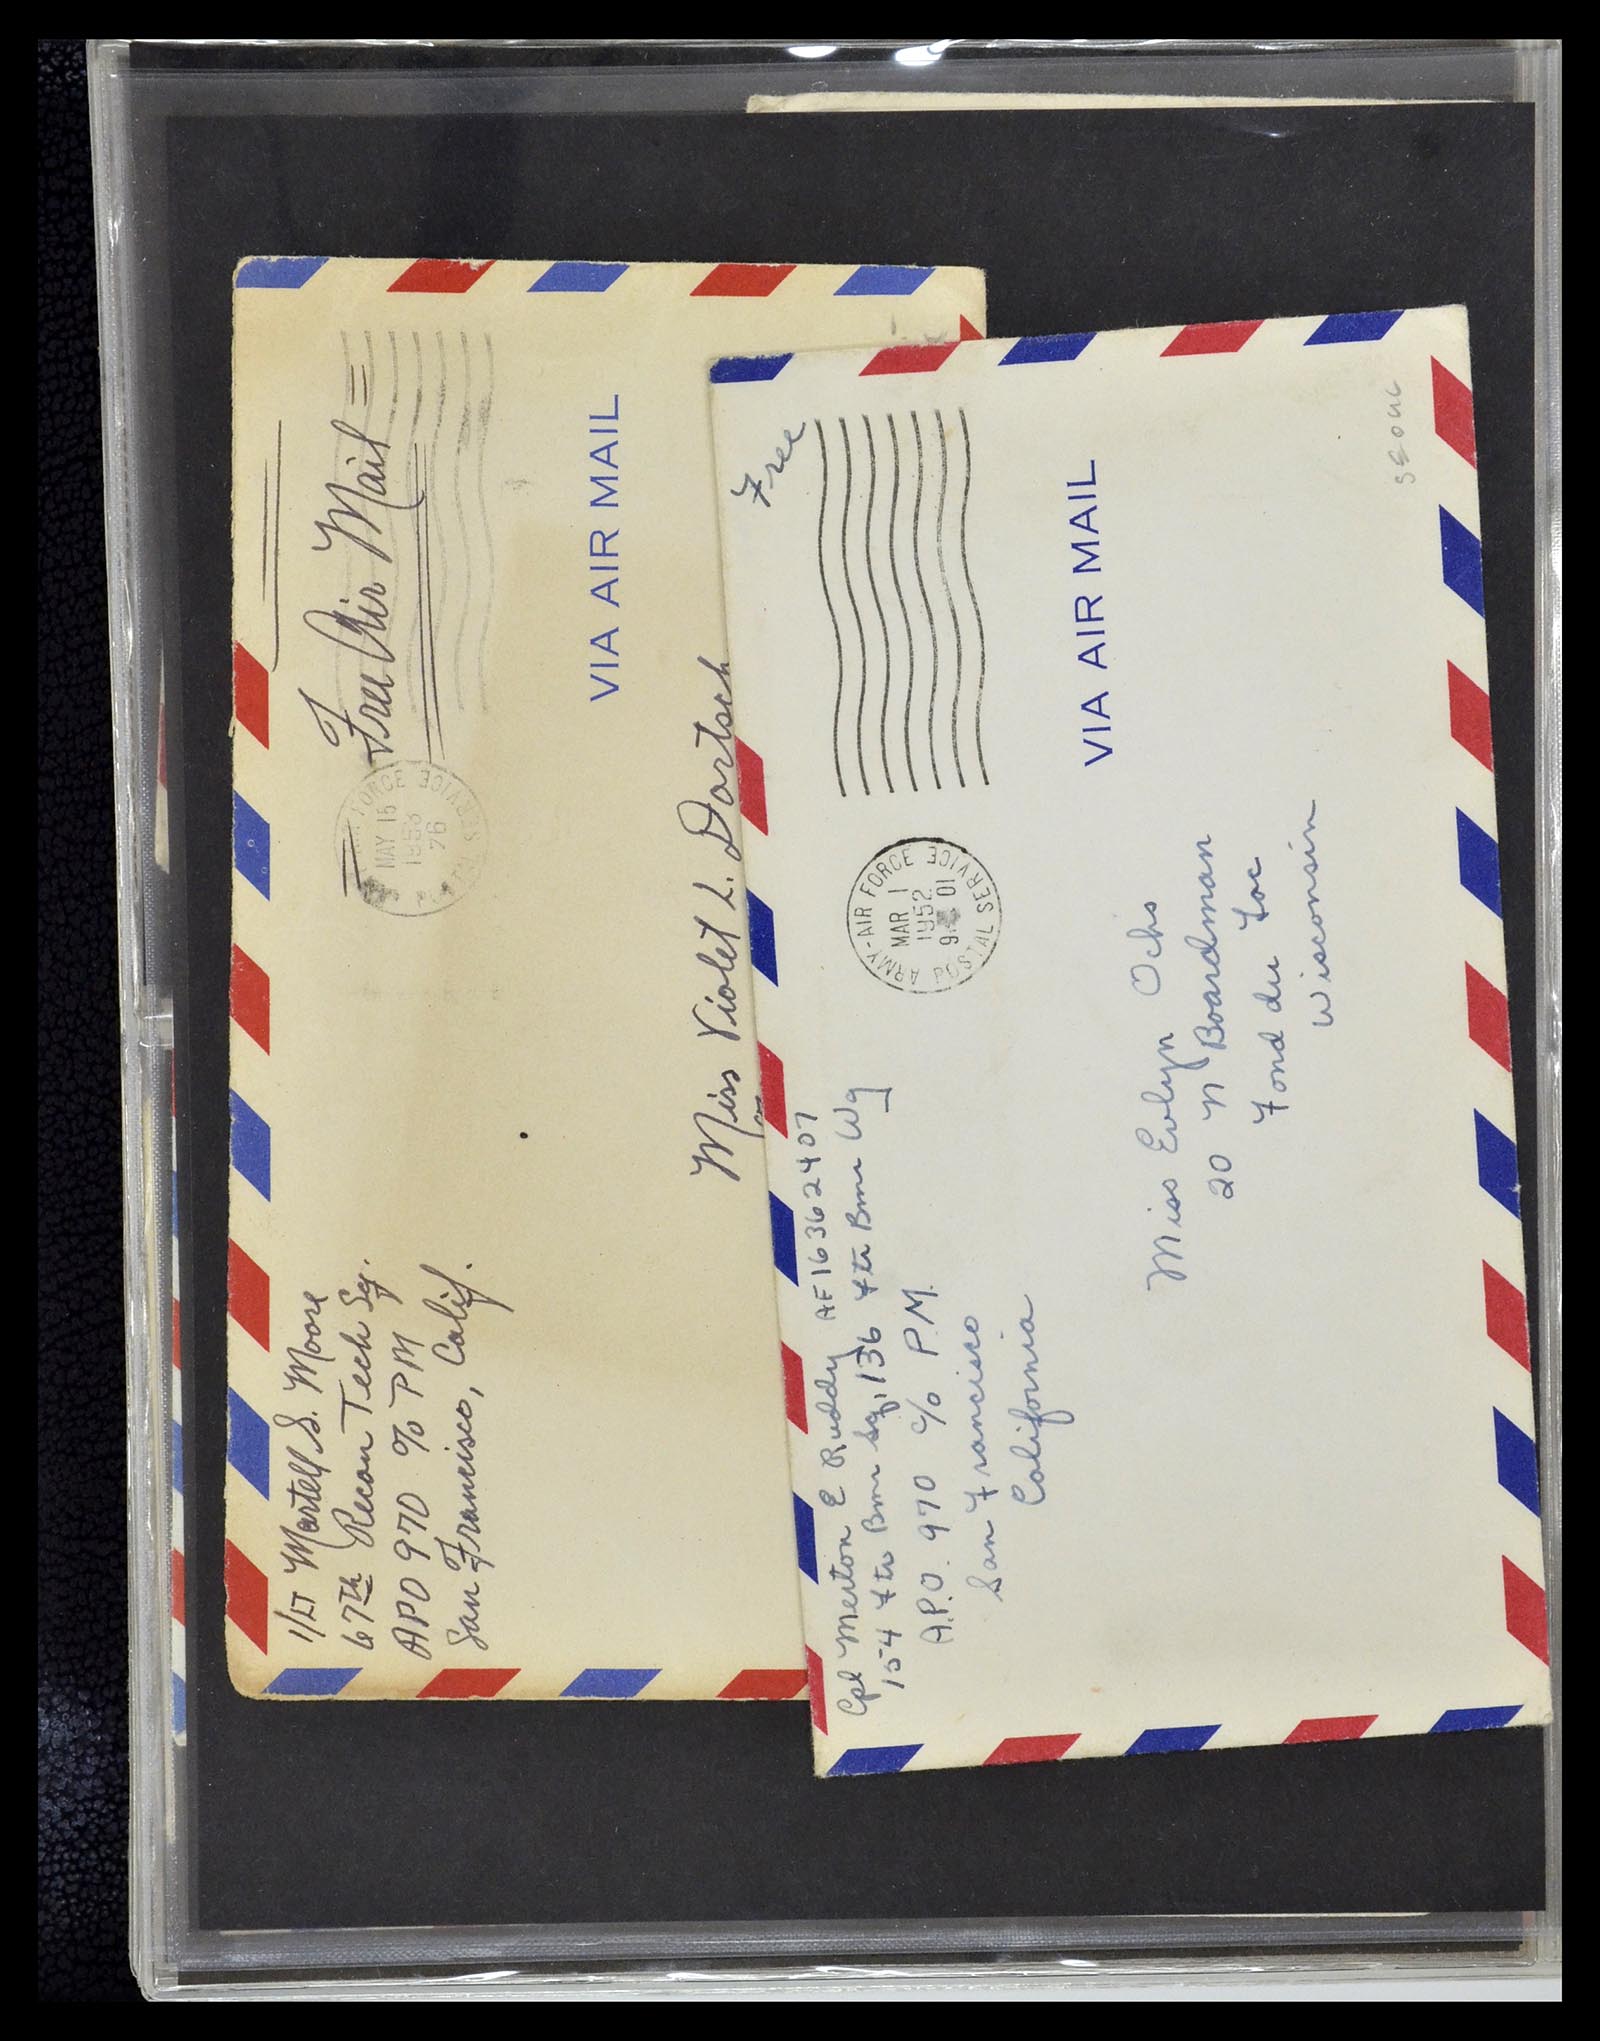 1/LT Martell S. Moore
67th Recon Tech Sq.
APO 970 % PM
San Francisco, Calif.
Free Air Mail
FORCE
SERVICE
MAY 15
1953
76
VIA AIR MAIL
Miss Violet L. Dartsch
Cpl Merton E Ruddy AF16362407
154 Ftr Bmr Sq, 136 Ftr Bmr Wg
A.P.O. 970 c/o P.M.
San Francisco
California
Free
ARMY-AIR FORCE
POSTAL SERVICE
MAR 1
1952
VIA AIR MAIL
Miss Evlyn Ochs
20 N Boardman
Fond du Loc
Wisconsin